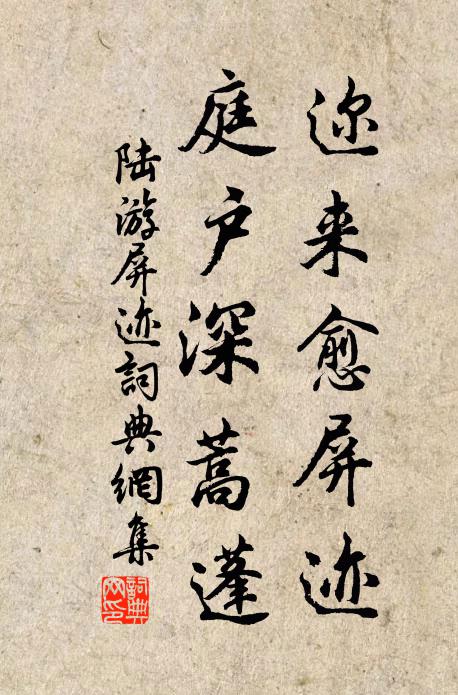 迩来愈屏迹
庭户深蒿蓬
陆游屏迹詞典網集
詞典网印